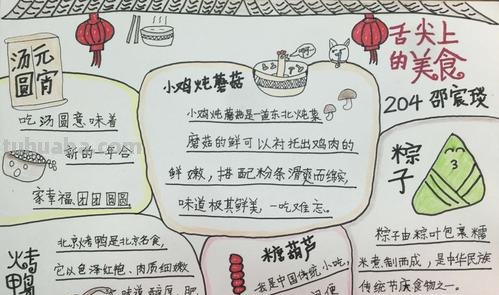 舌尖上
的美食
204 邵宸琰
汤圆
元宵
吃汤圆意味着
新的一年合
家幸福、团团圆圆
小鸡炖蘑菇
小鸡炖蘑菇是一道东北炖菜
蘑菇的鲜可以衬托出鸡肉的
鲜嫩，搭配粉条滑爽而绵软，
味道极其鲜美，一吃难忘。
粽子
粽子由粽叶包裹糯
米煮制而成，是中华民族
传统节庆食物之一。
烤鸭
北京烤鸭是北京名食，
它以色泽红艳、肉质细嫩
味道醇厚、肥
糖葫芦
我是中国传统小吃，
tuhuaba.com